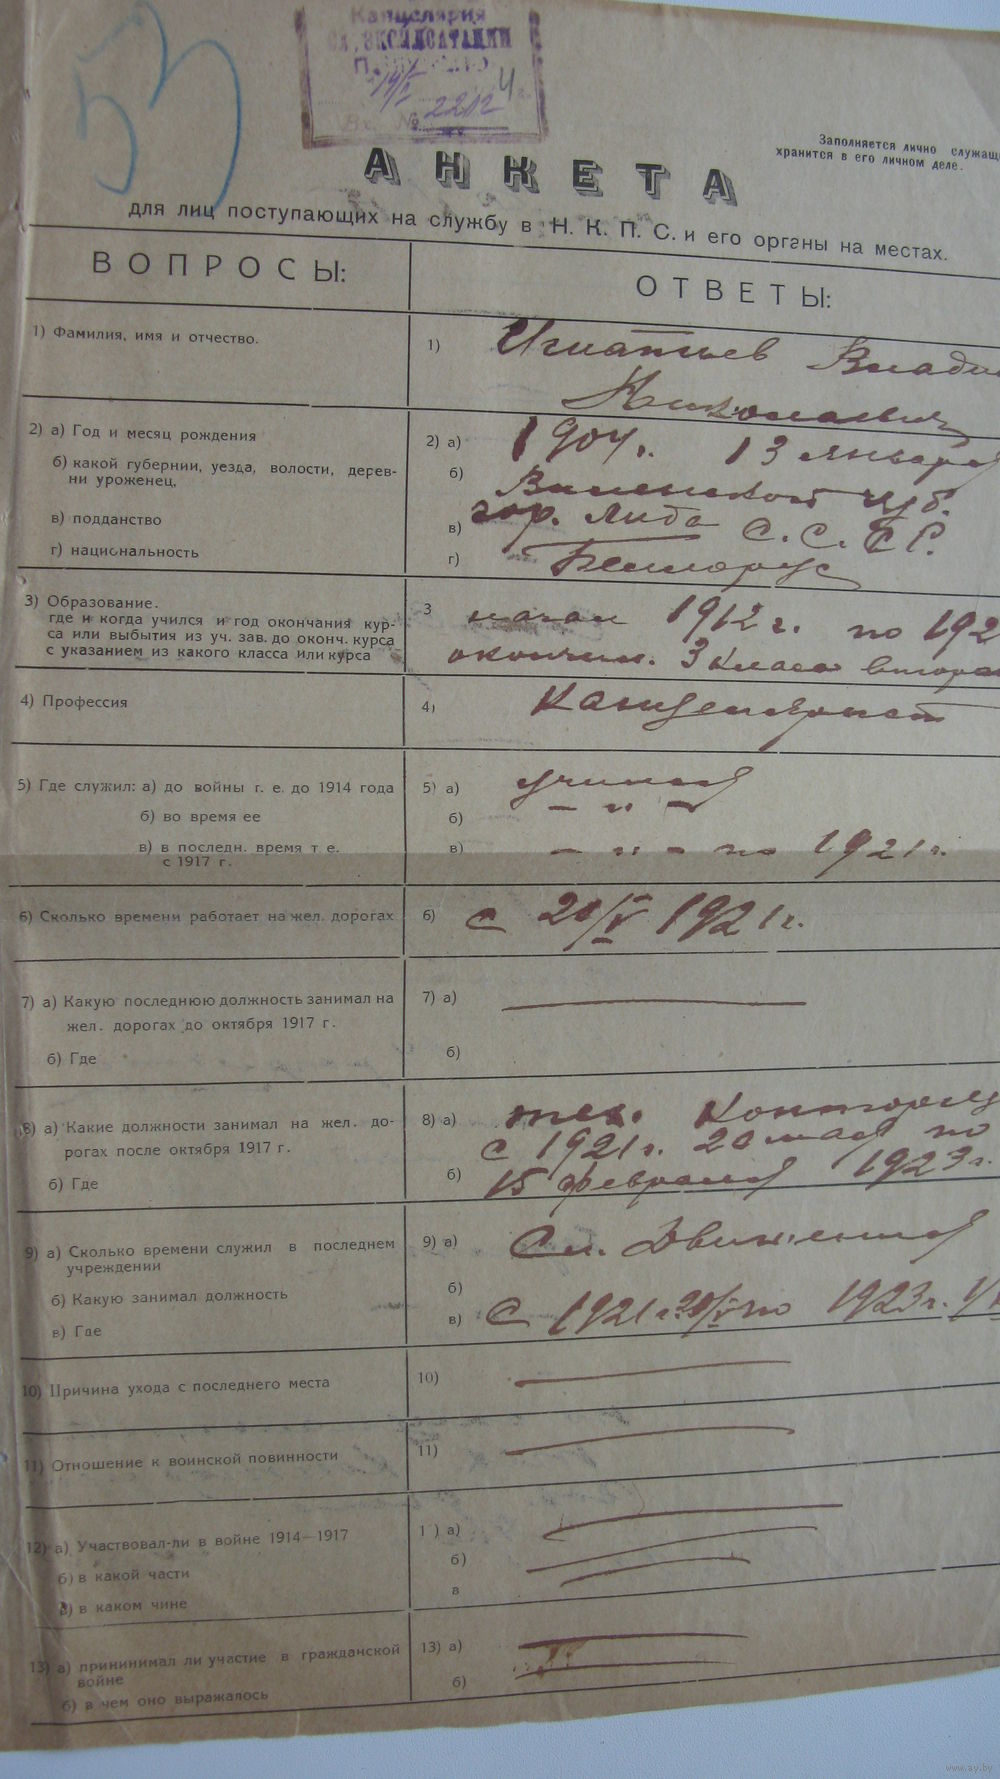 53
Канцелярия
СЛ. ЭКСПЛОАТАЦИИ
Вх. № 2212
Заполняется лично служащ
хранится в его личном деле.
АНКЕТА
для лиц поступающих на службу в Н. К. П. С. и его органы на местах.
ВОПРОСЫ:
ОТВЕТЫ:
1) Фамилия, имя и отчество.
1) Игнатьев Влади
Николаевич
2) а) Год и месяц рождения
2) а) 1904 г. 13 января
б) какой губернии, уезда, волости, дерев-
ни уроженец,
б) Виленской губ.
гор. Лида
в) подданство
в) С. С. С. Р.
г) национальность
г) Белморус
3) Образование.
где и когда учился и год окончания кур-
са или выбытия из уч. зав. до оконч. курса
с указанием из какого класса или курса
3 начал 1912 г. по 192
окончил. 3 класа второ
4) Профессия
4) Канцелярист
5) Где служил: а) до войны г. е. до 1914 года
5) а) учился
б) во время ее
б) — „ —
в) в последн. время т е.
с 1917 г.
в) — „ — по 1921 г.
6) Сколько времени работает на жел. дорогах
6) с 20/V 1921 г.
7) а) Какую последнюю должность занимал на
жел. дорогах до октября 1917 г.
7) а)
б) Где
б)
8) а) Какие должности занимал на жел. до-
рогах после октября 1917 г.
8) а) тех. Конторщ
с 1921 г. 20 мая по
б) Где
б) 15 февраля 1923 г.
9) а) Сколько времени служил в последнем
учреждении
9) а) Сл. Движения
б) Какую занимал должность
б)
в) Где
в) С 1921 г. 20/V по 1923 г.
10) Причина ухода с последнего места
10)
11) Отношение к воинской повинности
11)
12) а) Участвовал-ли в войне 1914—1917
1 ) а)
б) в какой части
б)
в) в каком чине
в
13) а) прининимал ли участие в гражданской
войне
13) а)
б) в чем оно выражалось
б)
www.ay.by